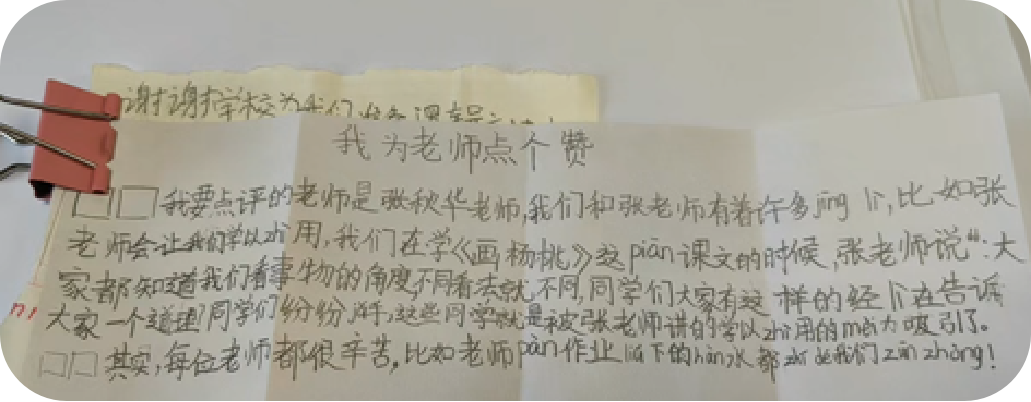 谢谢学校为我们准备课
我为老师点个赞
□□我要点评的老师是张秋华老师,我们和张老师有着许多jīng lì,比如张
老师会让我们学以zhì用,我们在学《画杨桃》这piān课文的时候,张老师说“:大
家都知道我们看事物的角度不同看法就不同,同学们大家有这样的经lì在告诉
大家一个道理同学们纷纷举手,这些同学就是被张老师讲的学以zhì用的mèi力吸引了。
□□其实,每位老师都很辛苦,比如老师pàn作业liú下的hàn水都zhí de我们zūn zhòng!